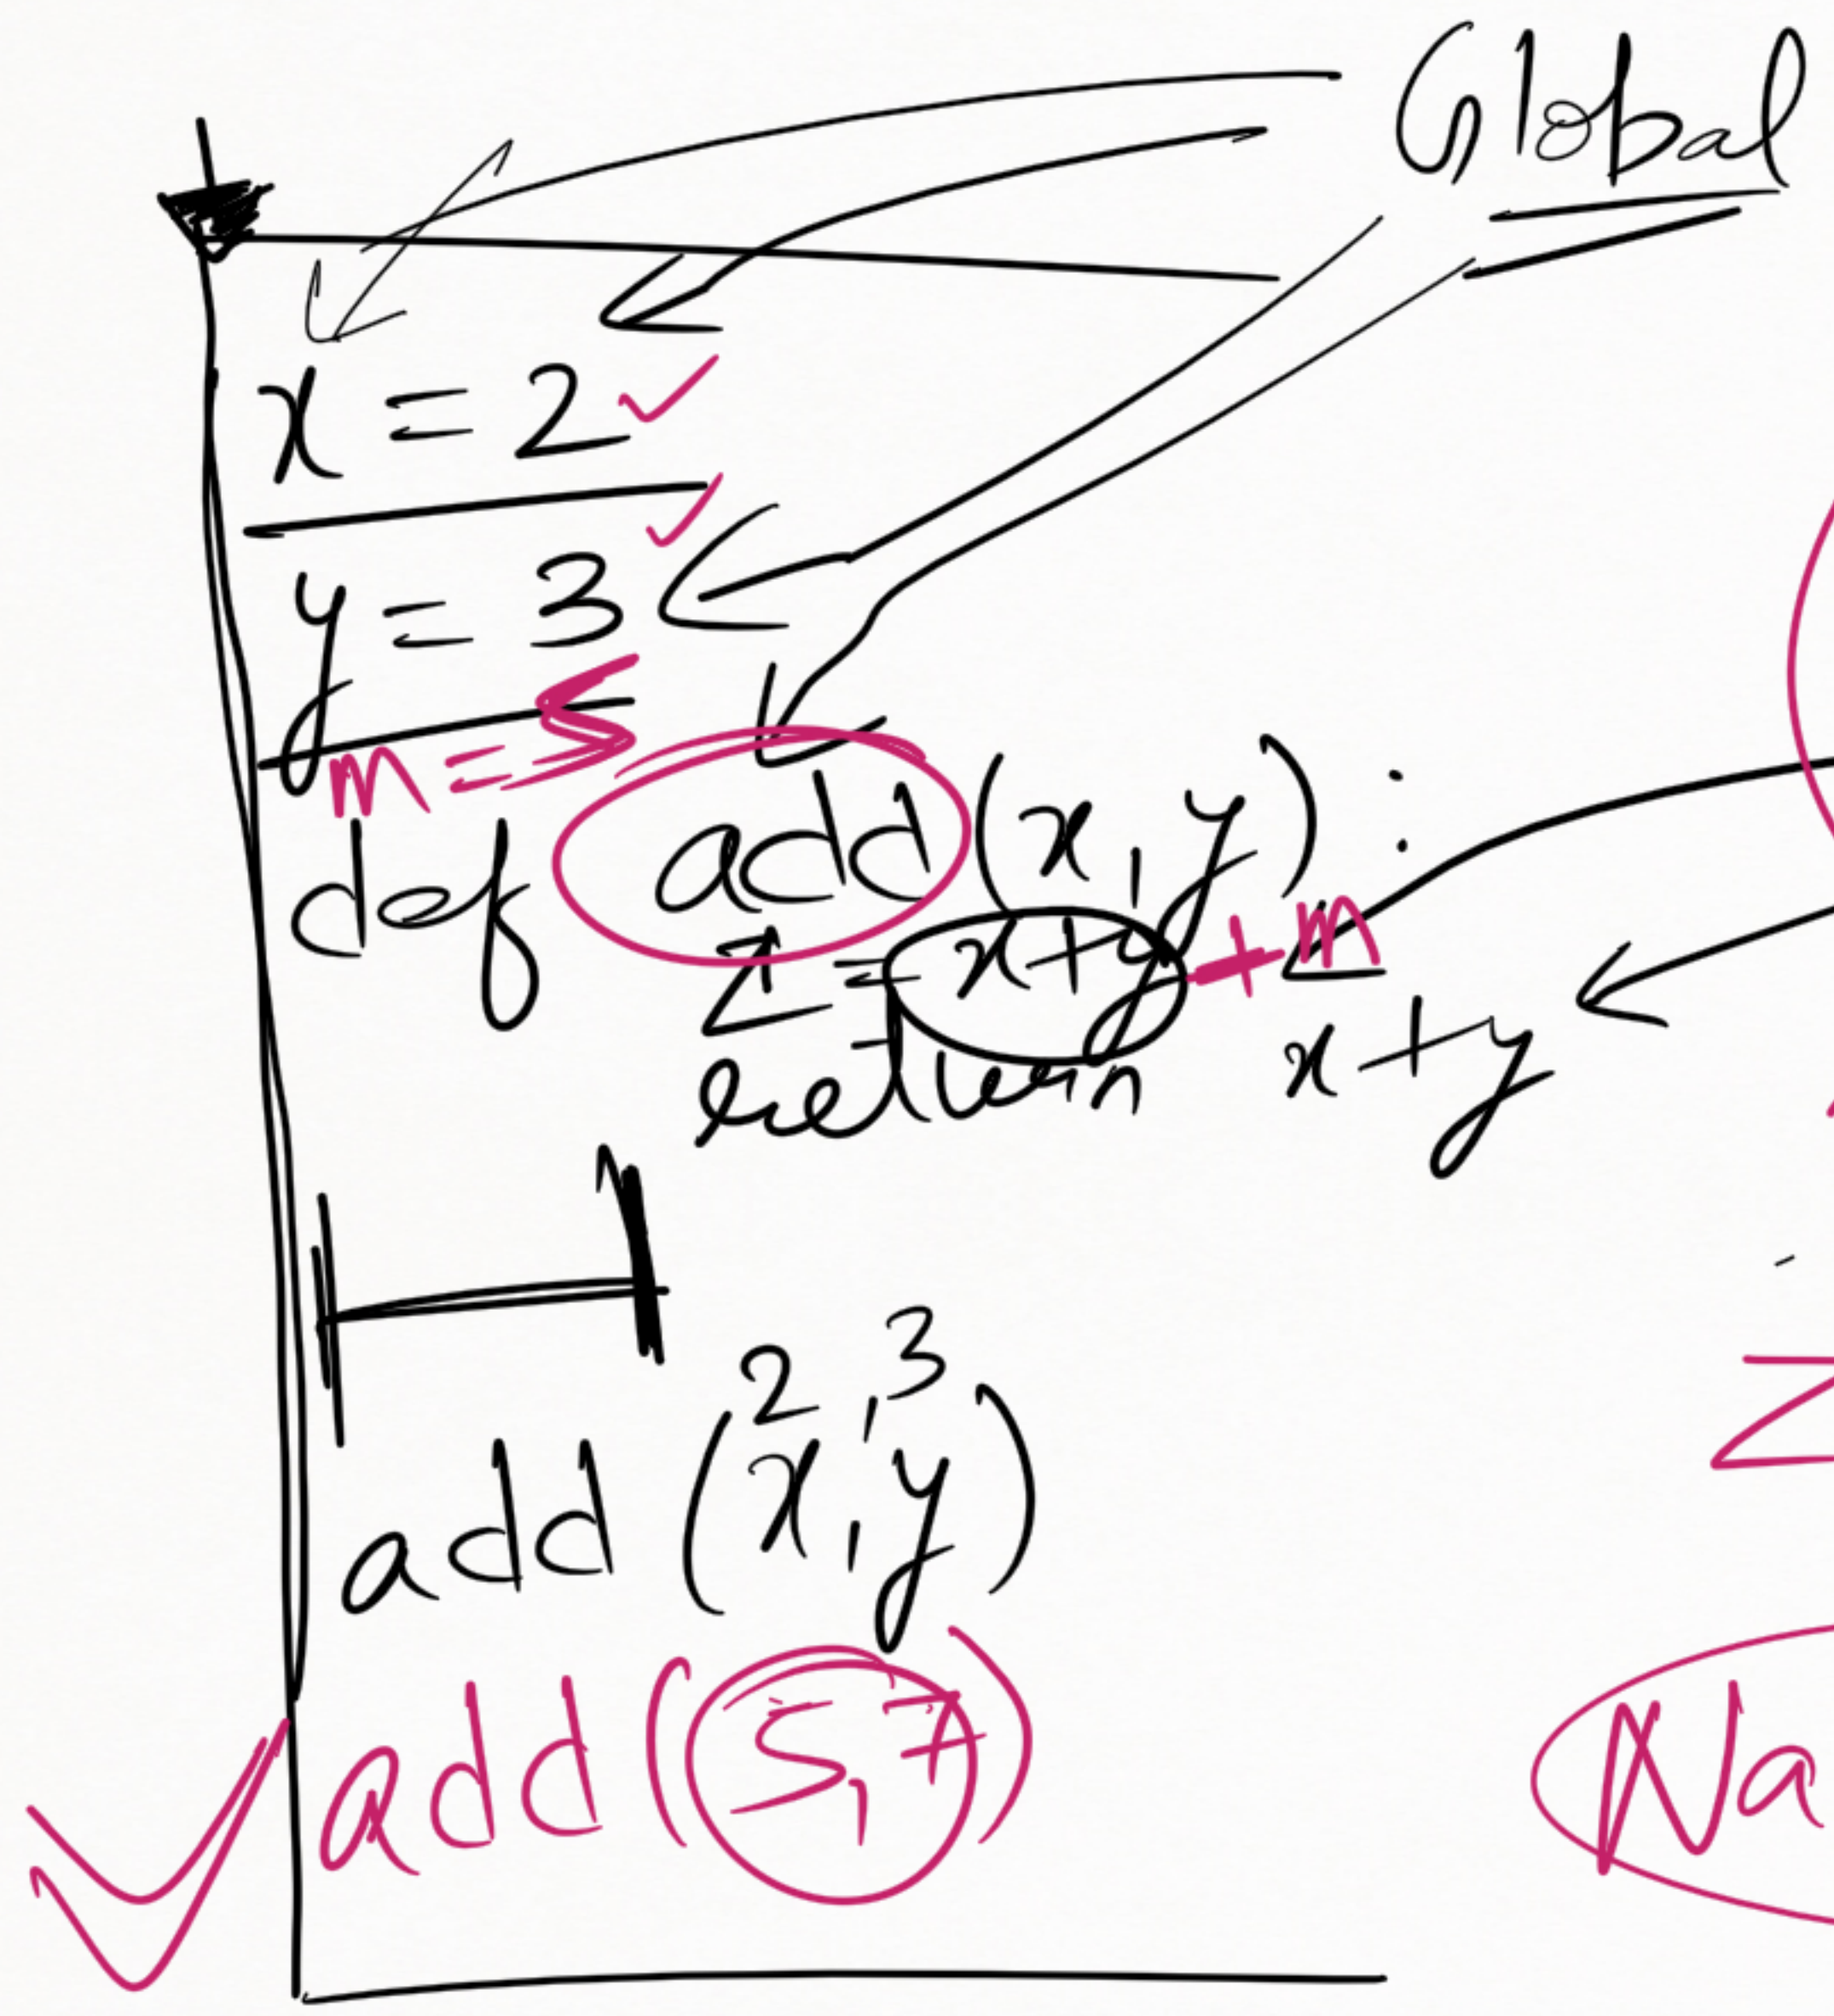 Global
x = 2
y = 3
m = 5
def add (x, y) :
z = x + y + m
return x + y
2, 3
add (x, y)
add (5, 7)
Z
Na